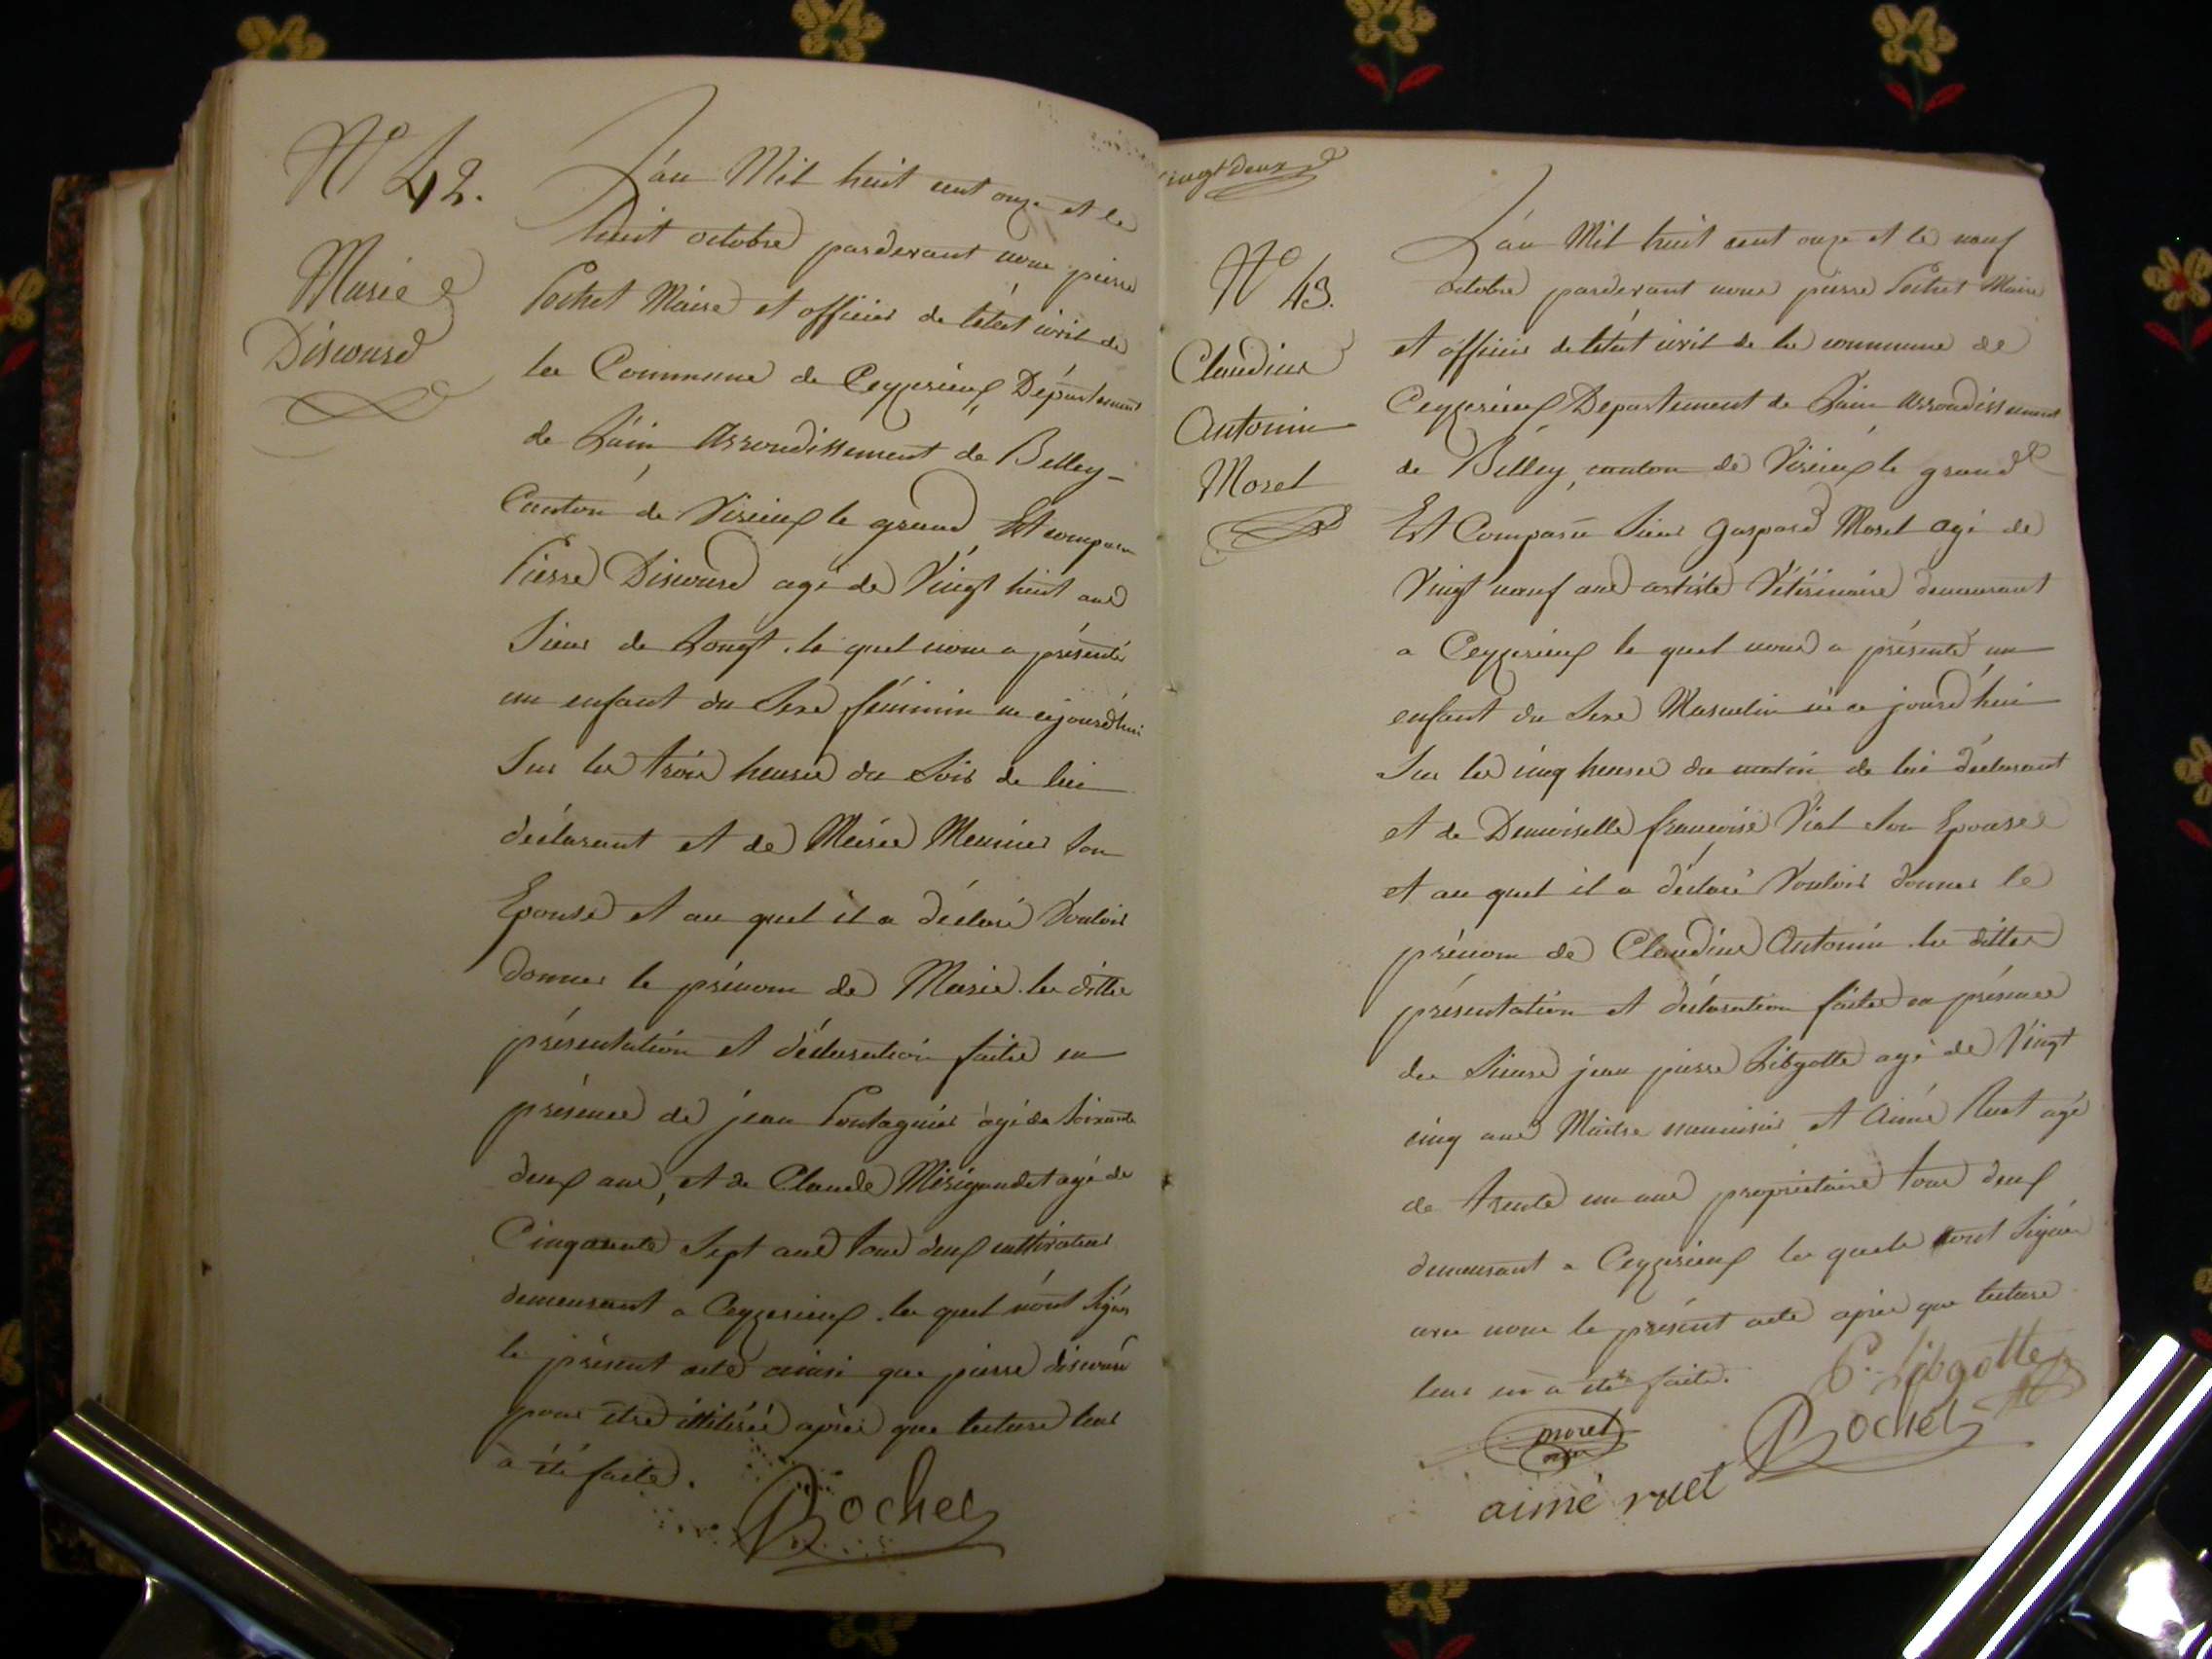 N° 42.
Marie
Discours
L'an Mil huit cent onze et le
huit octobre pardevant nous pierre
Pochet Maire et officier de l'état civil de
la Commune de Ceyzerieux Département
de L'ain Arrondissement de Belley
Canton de Virieux le grand Est comparu
Pierre Discours agé de Vingt huit ans
Sieur de Longt. le quel nous a présenté
un enfant du Sexe féminin né cejourd'hui
Sur les trois heures du Soir de lui
déclarant et de Marie Meunier Son
Epouse et au quel il a déclaré Vouloir
donner le prénom de Marie. les dittes
présentation et déclaration faites en
présence de jean Pontagnier agé de Soixante
deux ans, et de Claude Mérigaudet agé de
Cinquante Sept ans tous deux cultivateurs
demeurant a Ceyzerieux. les quels n'ont Signés
le présent acte ainsi que pierre discours
pour être illitérés après que lecture leur
a été faite.
Pochet
vingt deux
N° 43.
Claudius
Antonin
Moret
L'an Mil huit cent onze et le neuf
octobre pardevant nous pierre Pochet Maire
et officier de l'état civil de la commune de
Ceyzerieux Departement de L'ain arrondissement
de Belley, canton de Virieux le grand
Est Comparu Sieur gaspard Moret agé de
Vingt neuf ans artiste Vétérinaire demeurant
a Ceyzerieux le quel nous a présenté un
enfant du Sexe Masculin né ce jourd'hui
Sur les cinq heures du matin de lui déclarant
et de Demoiselle françoise Viat Son Epouse
et au quel il a déclaré Vouloir donner le
prénom de Claudius Antonin. les dittes
présentation et déclaration faites en présence
des Sieurs jean pierre Libgotte agé de Vingt
cinq ans Maitre menuisier et Aimé Ruet agé
de trente un ans propriétaire tous deux
demeurant a Ceyzerieux les quels ont Signés
avec nous le présent acte après que lecture
leur en a été faite.
P. Libgotte
moret
Pochet
aimé ruet